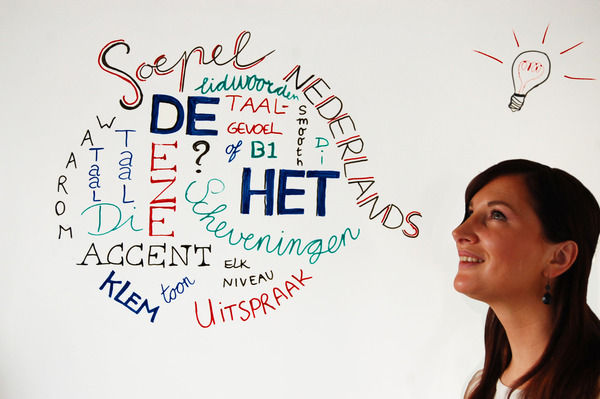 Soepel
NEDERLANDS
lidwoorden
DE
TAAL-
GEVOEL
smooth
Di
?
of
B1
EZE
HET
WAAROM
Taal
Taal
Di
Scheveningen
ACCENT
ELK
NIVEAU
KLEM
toon
UITSPRAAK